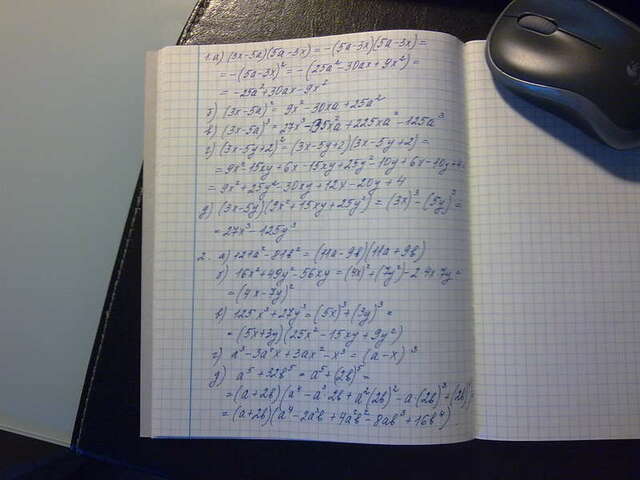 1. а) (3x-5a)(5a-3x)=-(5a-3x)(5a-3x)=
=-(5a-3x)²=-(25a²-30ax+9x²)=
=-25a²+30ax-9x²
б) (3x-5a)²=9x²-30xa+25a²
в) (3x-5a)³=27x³-135x²a+225xa²-125a³
г) (3x-5y+2)²=(3x-5y+2)(3x-5y+2)=
=9x²-15xy+6x-15xy+25y²-10y+6x-10y+4=
=9x²+25y²-30xy+12x-20y+4
д) (3x-5y)(9x²+15xy+25y²)=(3x)³-(5y)³=
=27x³-125y³
2. а) 121a²-81b²=(11a-9b)(11a+9b)
б) 16x²+49y²-56xy=(4x)²+(7y)²-2·4x·7y=
=(4x-7y)²
в) 125x³+27y³=(5x)³+(3y)³=
=(5x+3y)(25x²-15xy+9y²)
г) a³-3a²x+3ax²-x³=(a-x)³
д) a⁵+32b⁵=a⁵+(2b)⁵=
=(a+2b)(a⁴-a³·2b+a²(2b)²-a·(2b)³+(2b)⁴)
=(a+2b)(a⁴-2a³b+4a²b²-8ab³+16b⁴)